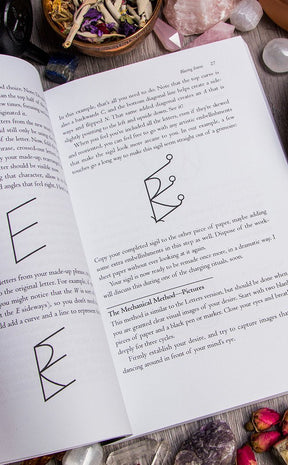 and choice. Now,
than the top half of
new times, form
tegrated it.
letters from the new
ld still only be seen
phrase, crossed-out letters
g your made-up,
be dealing with
ing that character, allow
d angles that feel right. I
E
letters from your made-up phrase
to the original letter. For example,
you might notice that the W is
E sideways), so you don't
ld add a curve and a line to represent
27
In this example, that's all you need to do. Note that the top curve is
just a backwards C, and the bottom diagonal line helps create a side-
ways and flipped N. That same added diagonal creates an A that is
slightly pointing to the left and upside down. See it?
When you feel you've included all the letters, even if they're skewed
and reoriented, you can feel free to go with any artistic embellishments
that make the sigil look more arcane to you. In our example, a few
touches go a long way to make this sigil seem straight out of a grimoire:
Copy your completed sigil to the other piece of paper, maybe adding
some extra embellishments in this step as well. Dispose of the work-
sheet paper without ever looking at it again.
Your sigil is now ready to be remade once more, in a dramatic way. I
will discuss this during one of the charging rituals, soon.
The Mechanical Method—Pictures
This method is similar to the Letters version, but should be done when
you are granted clear visual images of your desire. Start with two blank
pieces of paper and a black pen or marker. Close your eyes and breathe
deeply for three cycles.
Firmly establish your desire, and try to capture images that
dancing around in front of your mind's eye.